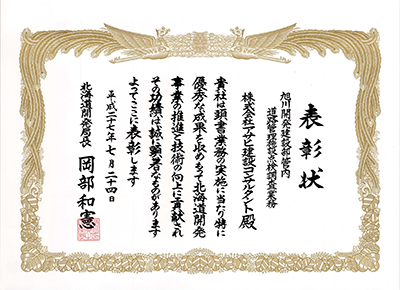 表彰状
旭川開発建設部管内
道路管理施設点検調査業務
株式会社アサヒ建設コンサルタント殿
貴社は頭書業務の実施に当たり特に
優秀な成果を収めもって北海道開発
事業の推進と技術の向上に貢献され
その功績は誠に顕著なものがあります
よってここに表彰します
平成二十七年七月二十四日
北海道開発局長 岡部和憲